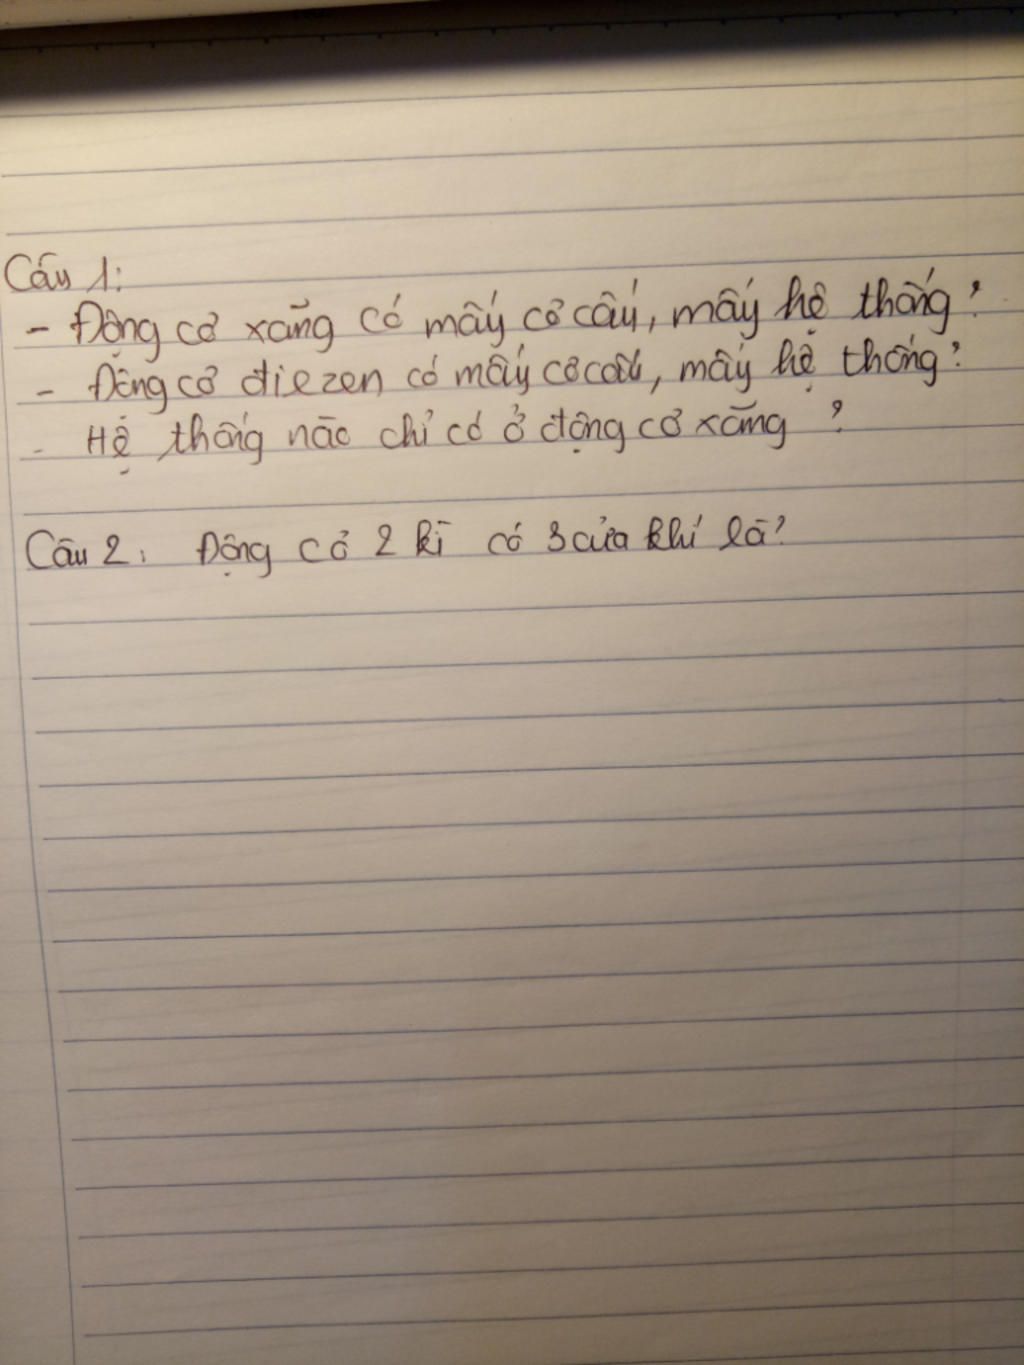 Câu 1:
- Động cơ xăng có mấy cơ cấu, mấy hệ thống?
- Động cơ điezen có mấy cơ cấu, mấy hệ thống?
- Hệ thống nào chỉ có ở động cơ xăng ?
Câu 2: Động cơ 2 kì có 3 cửa khí là?